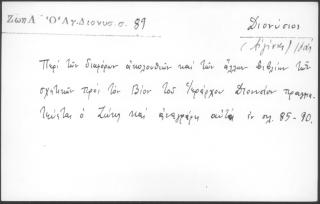 Ζώη Λ. "Ὁ Ἅγ. Διονυσ. σ. 89
Διονύσιος
(Αἰγίνης)
Περὶ τῶν διαφόρων ἀκολουθιῶν καὶ τῶν ἄλλων βιβλίων τῶν
σχετικῶν πρὸς τὸν βίον τοῦ Ἱεράρχου Διονυσίου πραγμα-
τεύεται ὁ Ζώης καὶ ἀναγράφει αὐτὰ ἐν σελ. 85-90.